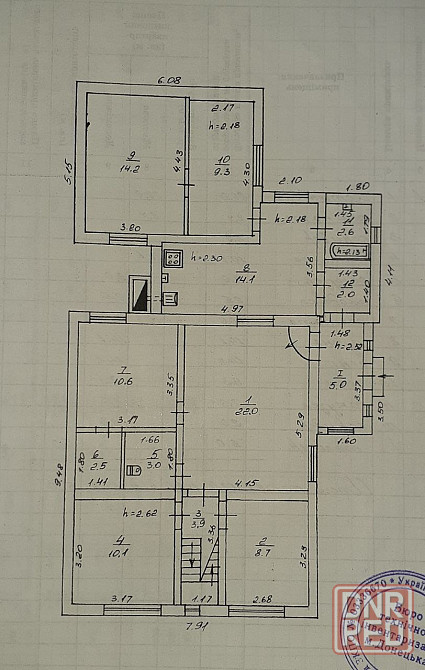 6.08
2.17
h=2.18
5.15
9
14.2
4.43
10
9.3
4.30
2.10
1.80
h=2.18
1.43
11
2.6
h=2.13
3.80
h=2.30
8
14.1
3.56
1.43
12
2.0
1.40
4.11
4.97
1.48
h=2.52
I
5.0
3.37
3.50
1.60
7
10.6
3.35
3.17
1
22.0
5.29
1.66
6
2.5
1.80
5
3.0
1.80
1.41
4.15
9.48
h=2.62
3
3.9
3.36
4
10.1
3.20
2
8.7
3.23
3.17
1.17
2.68
7.91
DNR
* Украї
Бюро
технічно
інвентариза
м.Донецька